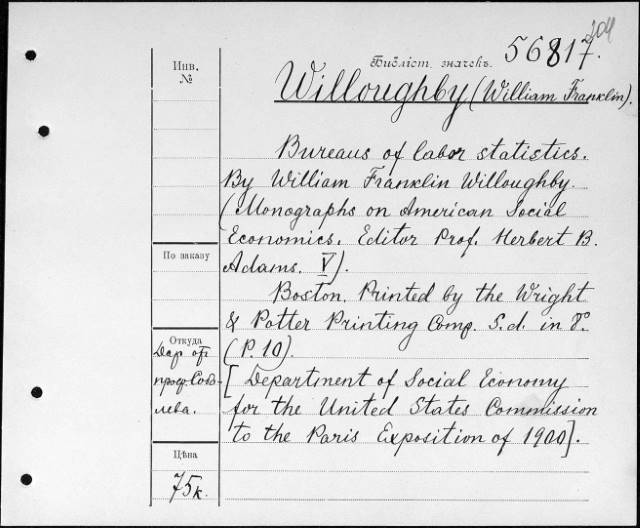 204
Библіот. значекъ. 56817.
Инв.
№
Willoughby (William Franklin).
Bureaus of labor statistics.
By William Franklin Willoughby.
(Monographs on American Social
Economics. Editor Prof. Herbert B.
Adams. V).
Boston. Printed by the Wright
& Potter Printing Comp. S.d. in 8°
(P. 10).
[Department of Social Economy
for the United States Commission
to the Paris Exposition of 1900].
По заказу
Откуда
Дар от
проф. Собо-
лева.
Цѣна
75 к.